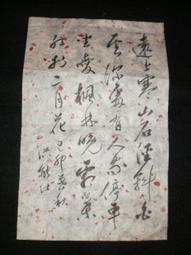 遠上寒山石徑斜白
雲深處有人家停車
坐愛楓林晚霜葉
紅於二月花 己卯秋